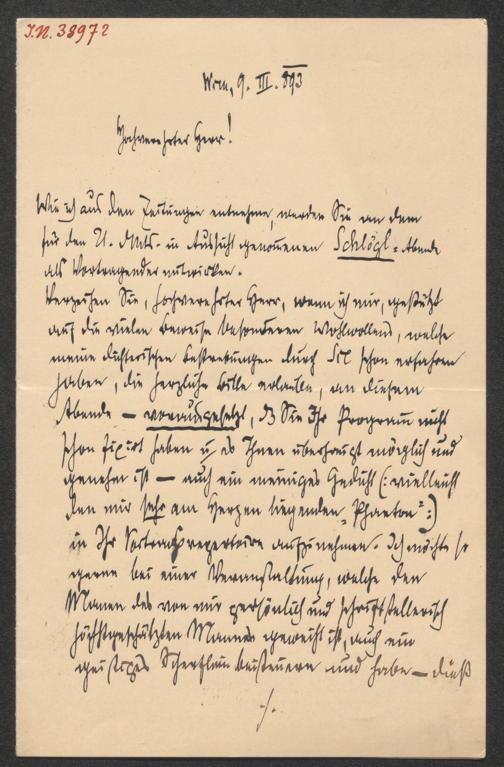 I.N. 38972
Wien, 9. III. 893
Hochverehrter Herr!
Wie ich aus den Zeitungen entnehme, werden Sie an dem
für den 21. d. Mts. in Aussicht genommenen Schlögl-Abende
als Vortragender mitwirken.
Verzeihen Sie, hochverehrter Herr, wenn ich mir, gestützt
auf die vielen Beweise besonderen Wohlwollens, welche
meine dichterischen Bestrebungen durch Sie schon erfahren
haben, die herzliche Bitte erlaube, an diesem
Abende – vorausgesetzt, dß Sie Ihr Programm nicht
schon fixirt haben u. es Ihnen überhaupt möglich und
genehm ist – auch ein meiniges Gedicht (: vielleicht
den mir sehr am Herzen liegenden „Phaeton" :)
in Ihr Vortragsrepertoire aufzunehmen. Ich möchte so
gerne bei einer Veranstaltung, welche den
Manen des von mir persönlich und schriftstellerisch
höchstgeschätzten Mannes geweiht ist, auch ein
geistiges Scherflein beisteuern und habe – dieß
./.